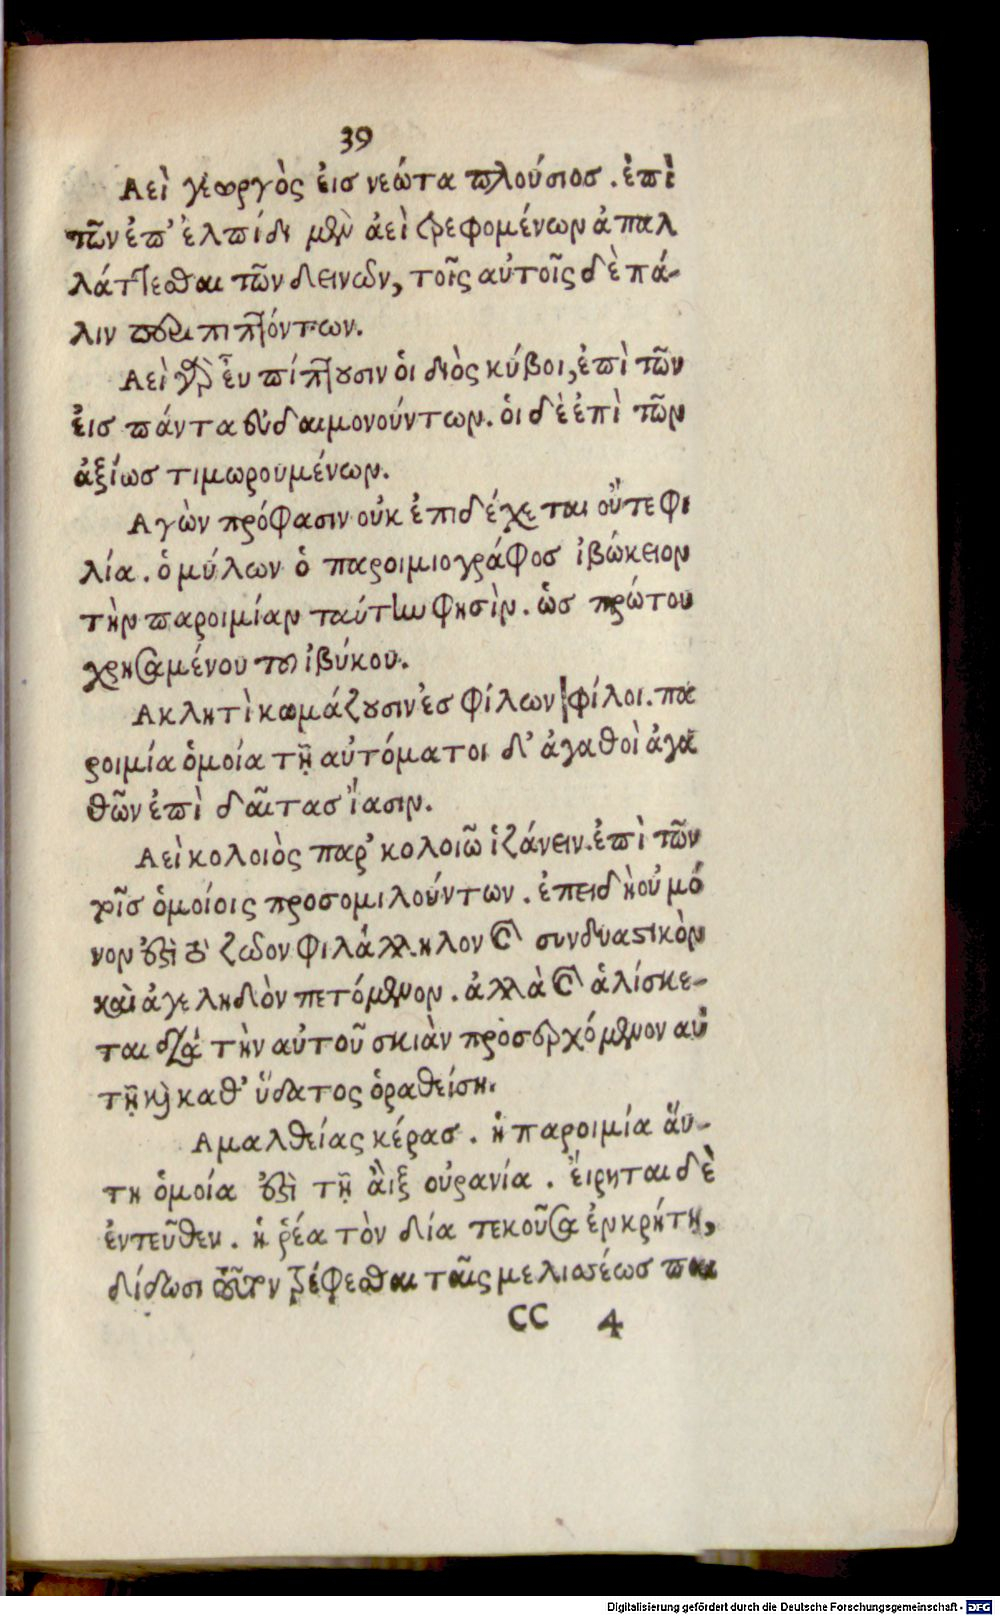 39
Αεὶ γεωργὸς ἐισ νεώτα πλούσιοσ. ἐπὶ
τῶν ἐπ’ ἐλπίδι μὲν ἀεὶ τρεφομένων ἀπαλ
λάττεσθαι τῶν δεινῶν, τοῖς αὐτοῖς δὲ πά-
λιν περιπιπτόντων.
Αεὶ γὰρ ἒυ πίπτουσιν ὁι διὸς κύβοι, ἐπὶ τῶν
ἐισ πάντα εὐδαιμονούντων. ὁι δὲ ἐπὶ τῶν
ἀξίωσ τιμωρουμένων.
Αγὼν πρόφασιν οὐκ ἐπιδέχεται οὔτε φι
λία. ὁ μύλων ὁ παροιμιογράφοσ ἰβώκειον
τὴν παροιμίαν ταύτην φησὶν. ὡσ πρώτου
χρησαμένου τοῦ ἰβύκου.
Ακλητὶ κωμάζουσιν ἐσ φίλων φίλοι. πα
ροιμία ὁμοία τῇ αὐτόματοι δ’ ἀγαθοὶ ἀγα
θῶν ἐπὶ δαῖτασ ἵασιν.
Αεὶ κολοιὸς παρ’ κολοιῶ ἱζάνειν. ἐπὶ τῶν
τοῖσ ὁμοίοις προσομιλούντων. ἐπειδὴ οὐ μό
νον ἐστὶ τὸ ζῶον φιλάλληλον καὶ συνδυαστικὸν
καὶ ἀγεληδὸν πετόμενον. ἀλλὰ καὶ ἁλίσκε-
ται διὰ τὴν αὐτοῦ σκιὰν προσερχόμενον αὐ
τῇ καὶ καθ’ ὕδατος ὁραθείση.
Αμαλθείας κέρασ. ἡ παροιμία ἅυ-
τη ὁμοία ἐστὶ τῇ ἂιξ οὐρανία. ἔιρηται δὲ
ἐντεῦθεν. ἡ ῥέα τὸν δία τεκοῦσα ἐν κρήτη,
δίδωσι τρέφεσθαι ταῖς μελισσέωσ παι
CC 4
Digitalisierung gefördert durch die Deutsche Forschungsgemeinschaft - DFG